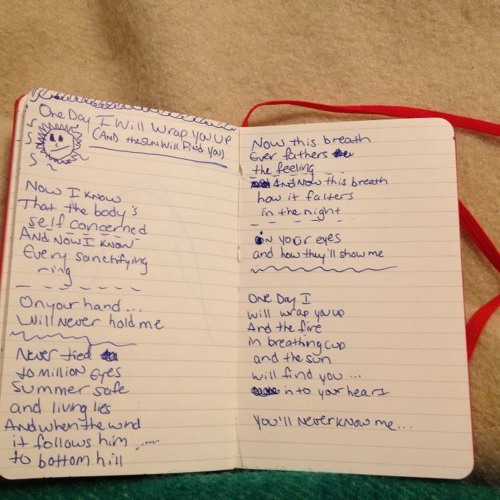 One Day I Will Wrap You Up
(And the sun Will Find You)
Now I know
That the body's
self concerned
And Now I know
Every sanctifying
ring
On your hand...
Will Never hold me
Never tied
to million eyes
Summer safe
and living lies
And when the wind
it follows him .....
to bottom hill
Now this breath
Ever fathers
the feeling
And Now this breath
how it falters
in the night
On your eyes
and how they'll show me
One Day I
will wrap you up
And the fire
in breathing cup
and the sun
will find you ...
in to your heart
You'll Never know me...